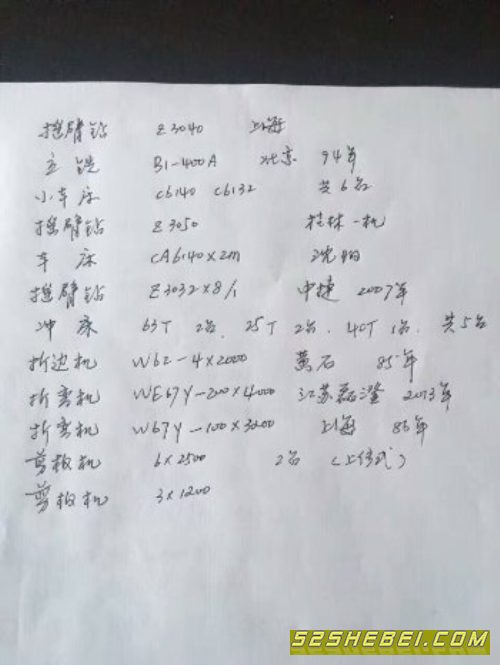 摇臂钻 Z3040 上海
立铣 B1-400A 北京 94年
小车床 C6140 C6132 共6台
摇臂钻 Z3050 桂林一机
车床 CA6140×2m 沈阳
摇臂钻 Z3032×8/1 中捷 2007年
冲床 63T 2台、25T 2台、40T 1台、共5台
折边机 W62-4×2000 黄石 85年
折弯机 WE67Y-200×4000 江苏 2013年
折弯机 W67Y-100×3200 上海 86年
剪板机 6×2500 2台 (上传式)
剪板机 3×1200
52SHEBEI.COM